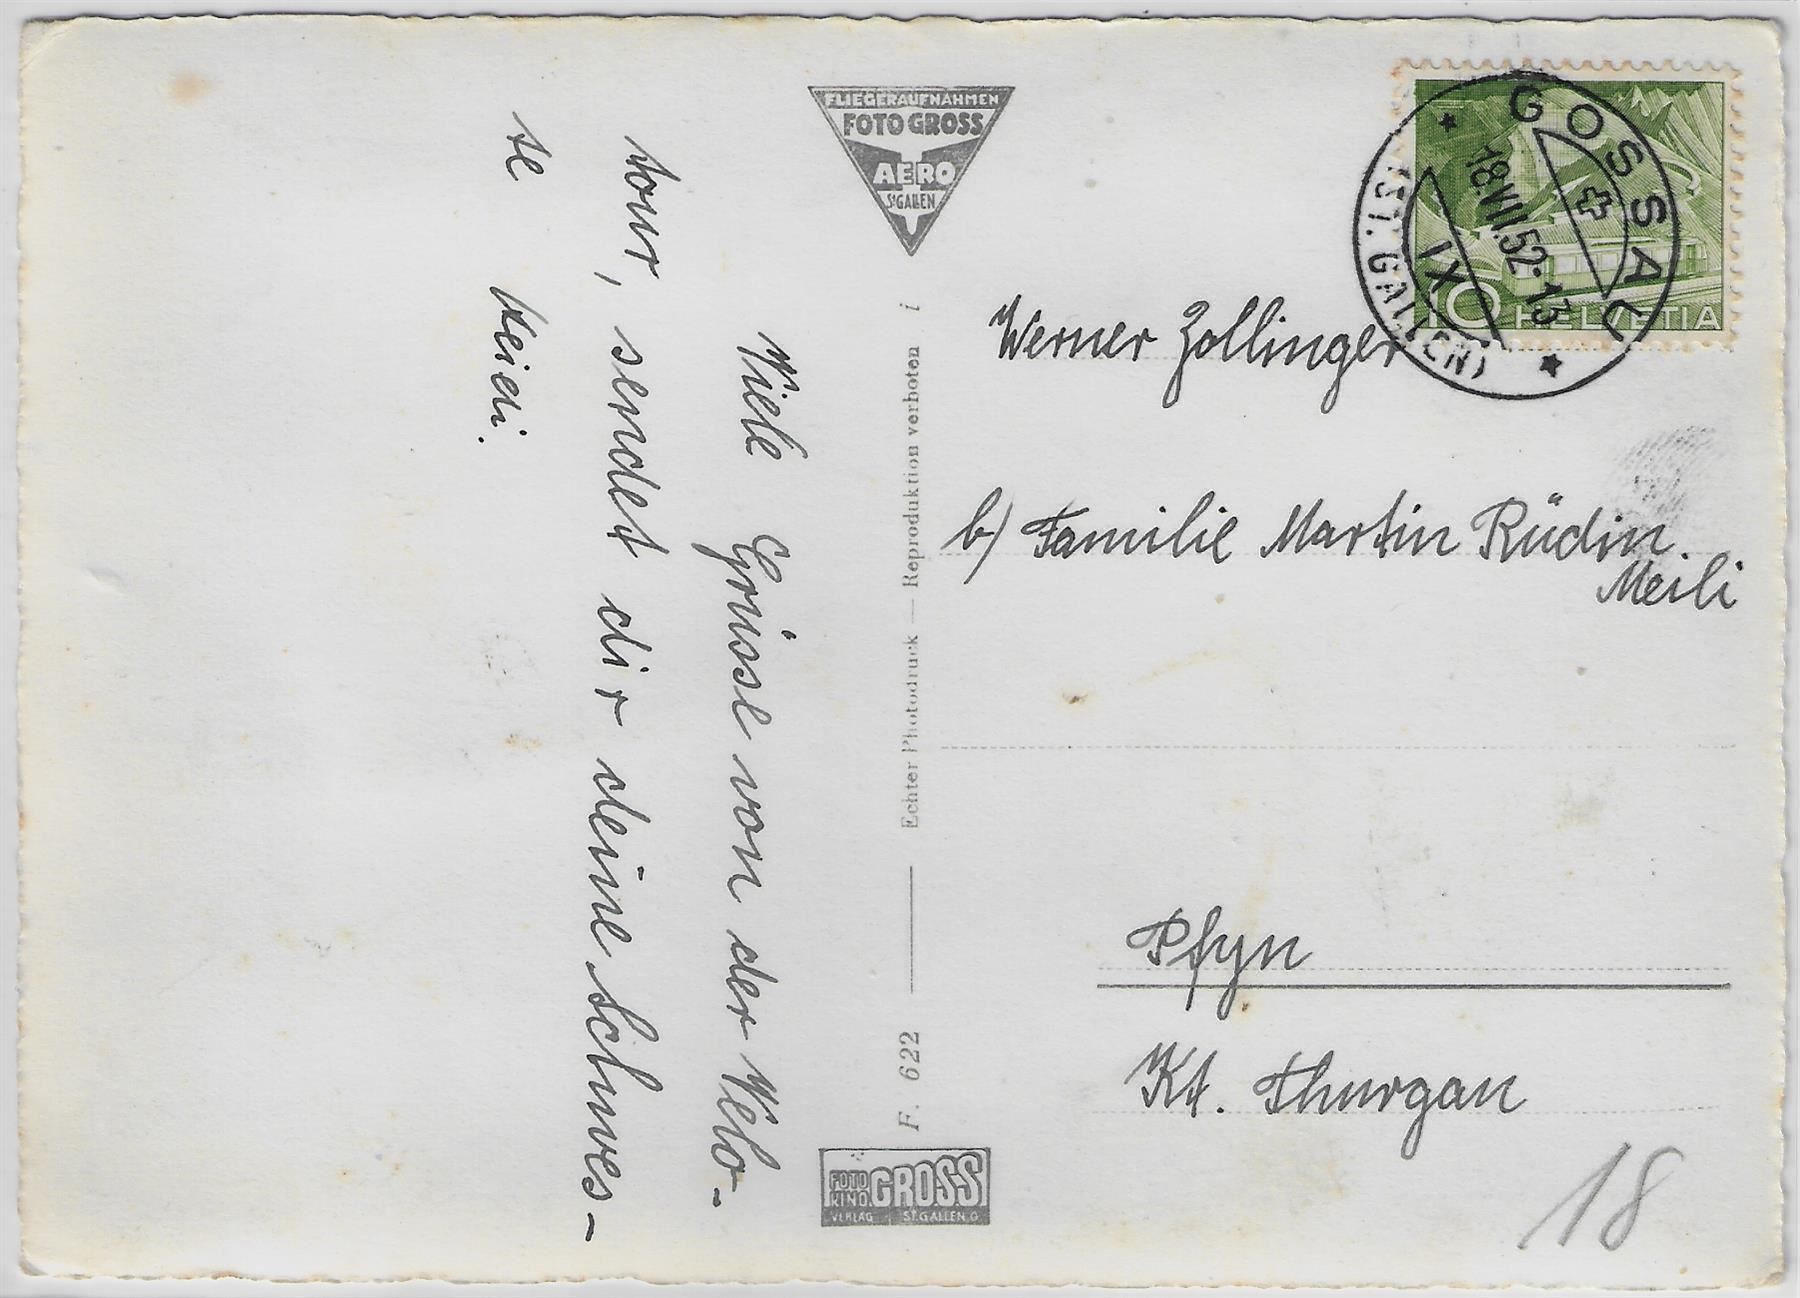 Viele Grüsse von der Velo-
tour, sendet dir deine Schwes-
te Heidi.
FLIEGERAUFNAHMEN
FOTO GROSS
AERO
ST. GALLEN
F. 622 — Echter Photodruck — Reproduktion verboten i
FOTO
KINO
GROSS
VERLAG ST. GALLEN O
GOSSAU
18.VII.52·13
IX
(ST. GALLEN)
10 HELVETIA
Werner Zollinger
b/ Familie Martin Rüdin.
Meili
Pfyn
Kt. Thurgau
18